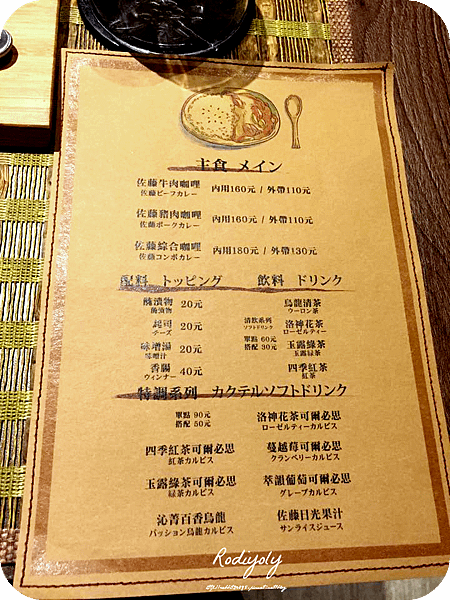 主食 メイン
佐藤牛肉咖哩 內用160元 / 外帶110元
佐藤ビーフカレー
佐藤豬肉咖哩 內用160元 / 外帶110元
佐藤ポークカレー
佐藤綜合咖哩 內用180元 / 外帶130元
佐藤コンボカレー
配料 トッピング 飲料 ドリンク
醃漬物 20元
漬物
起司 20元
チーズ
味噌湯 20元
味噌汁
香腸 40元
ウィンナー
清飲系列
ソフトドリンク
單點 60元
搭配 30元
烏龍清茶
ウーロン茶
洛神花茶
ローゼルティー
玉露綠茶
玉露緑茶
四季紅茶
紅茶
特調系列 カクテルソフトドリンク
單點 90元
搭配 50元
洛神花茶可爾必思
ローゼルティーカルピス
四季紅茶可爾必思
紅茶カルピス
蔓越莓可爾必思
クランベリーカルピス
玉露綠茶可爾必思
緑茶カルピス
萃韻葡萄可爾必思
グレープカルピス
沁菁百香烏龍
パッション烏龍カルピス
佐藤日光果汁
サンライズジュース
Rodiyoly